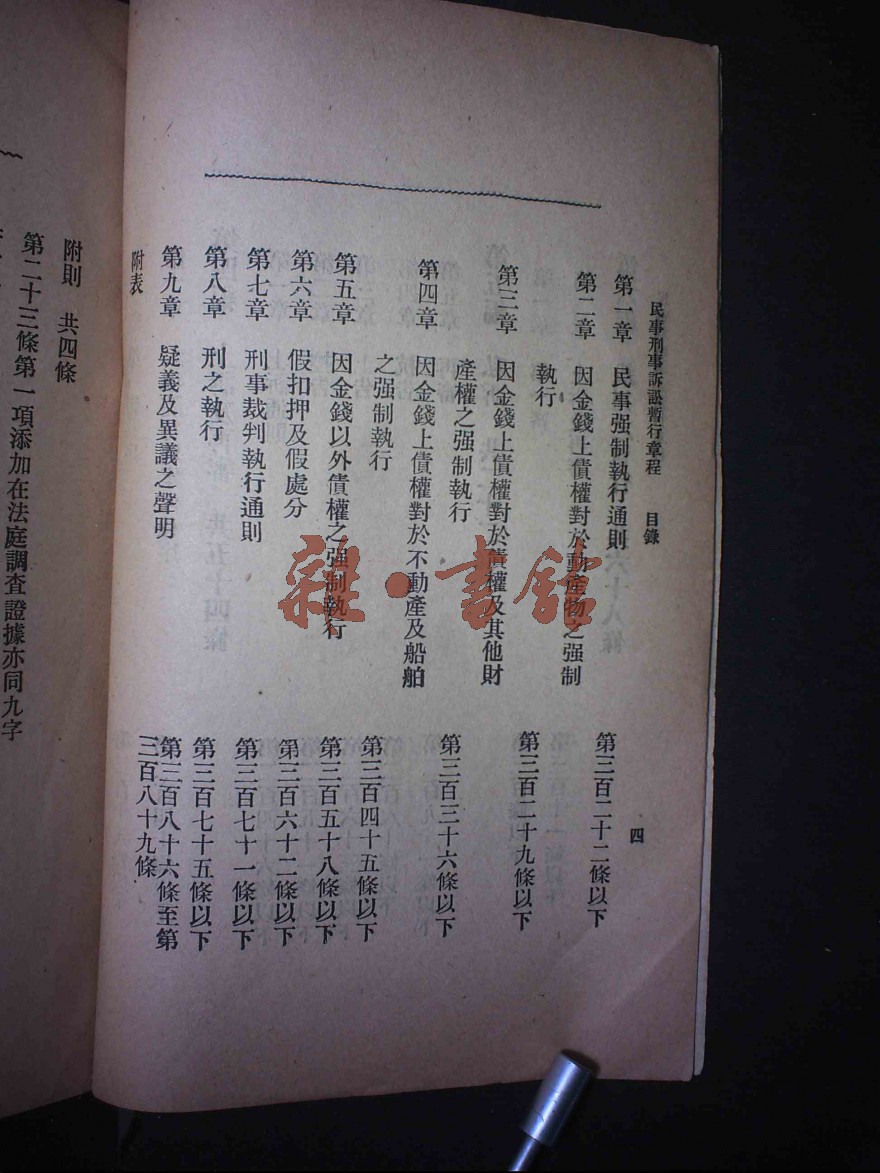 民事刑事訴訟暫行章程　目錄　四
第一章　民事强制執行通則　第三百二十二條以下
第二章　因金錢上債權對於動產物之强制
執行　第三百二十九條以下
第三章　因金錢上債權對於債權及其他財
產權之强制執行　第三百三十六條以下
第四章　因金錢上債權對於不動產及船舶
之强制執行　第三百四十五條以下
第五章　因金錢以外債權之强制執行　第三百五十八條以下
第六章　假扣押及假處分　第三百六十二條以下
第七章　刑事裁判執行通則　第三百七十一條以下
第八章　刑之執行　第三百七十五條以下
第九章　疑義及異議之聲明　第三百八十六條至第
三百八十九條
附表
附則　共四條
第二十三條第一項添加在法庭調查證據亦同九字
雜·書舘